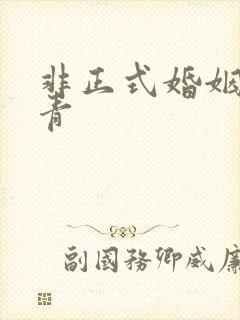 非正式婚姻
青
副國務卿威廉